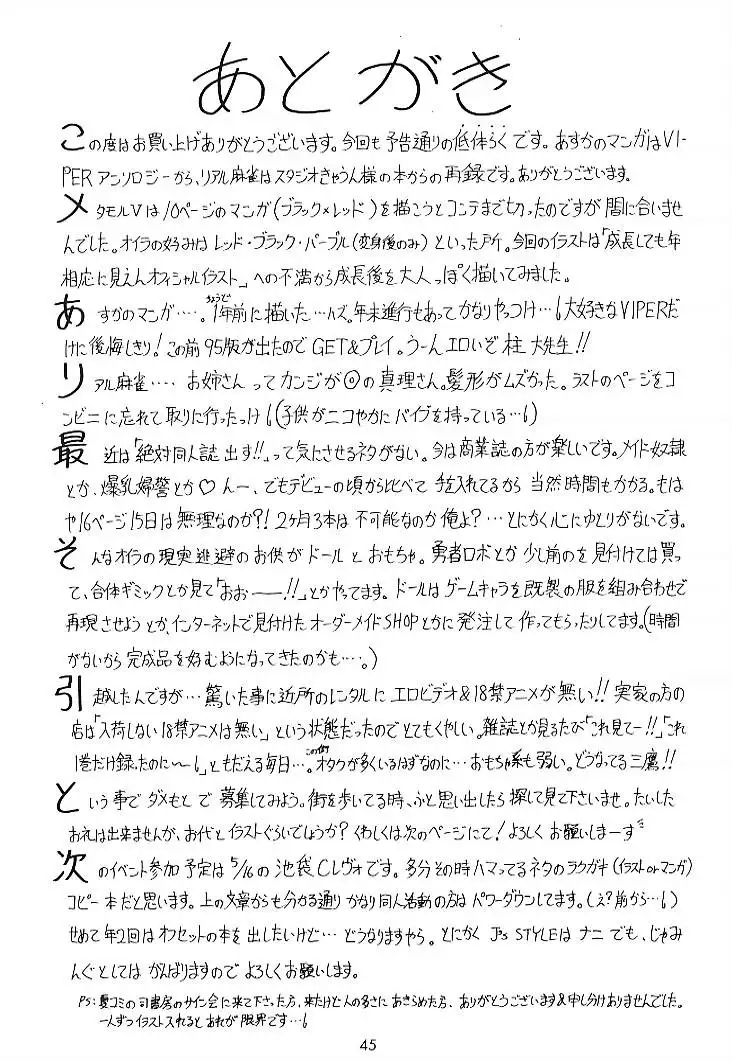 あとがき
この度はお買い上げありがとうございます。今回も予告通りの低体らくです。あすかのマンガはVI-
PERアンソロジーから、リアル麻雀はスタジオきゃうん様の本からの再録です。ありがとうございます。
メタモルVは10ページのマンガ(ブラック×レッド)を描こうとコンテまで切ったのですが間に合いませ
んでした。オイラの好みはレッド・ブラック・パープル(変身後のみ)といった所。今回のイラストは「成長しても年
相応に見えんオフィシャルイラスト」への不満から成長後を大人っぽく描いてみました。
あすかのマンガ‥‥。ちょうど1年前に描いた…ハズ。年末進行もあってかなりやっつけ…。大好きなVIPERだ
けに後悔しきり!この前95版が出たのでGET&プレイ。うーんエロいぞ柱大先生!!
リアル麻雀‥‥お姉さんってカンジが◎の真理さん。髪形がムズかった。ラストのページをコ
ンビニに忘れて取りに行ったっけ(子供がニコやかにバイブを持っている…)
最近は「絶対同人誌出す!!」って気にさせるネタがない。今は商業誌の方が楽しいです。メイド奴隷
とか、爆乳婦警とか♡んー、でもデビューの頃から比べて手入れてるから当然時間もかかる。もは
や16ページ15日は無理なのか?!2ヶ月3本は不可能なのか俺よ?…とにかく心にゆとりがないです。
そんなオイラの現実逃避のお供がドールとおもちゃ。勇者ロボとか少し前のを見付けては買っ
て、合体ギミックとか見て「おおー――!!」とかやってます。ドールはゲームキャラを既製の服を組み合わせで
再現させようとか、インターネットで見付けたオーダーメイドSHOPとかに発注して作ってもらったりしてます。(時間
がないから完成品を好むようになってきたのかも…。)
引越したんですが…驚いた事に近所のレンタルにエロビデオ&18禁アニメが無い!!実家の方の
店は「入荷しない18禁アニメは無い」という状態だったのでとてもくやしい。雑誌とか見るたび「これ見てー!!」「これ
1巻だけ録ったのに〜」ともだえる毎日…。この街オタクが多くいるはずなのに…おもちゃ系も弱い。どうなってる三鷹!!
という事でダメもとで募集してみよう。街を歩いてる時、ふと思い出したら探して見て下さいませ。たいした
お礼は出来ませんが、お代とイラストぐらいでしょうか?くわしくは次のページにて!よろしくお願いしまーす
次のイベント参加予定は5/16の池袋Cレヴォです。多分その時ハマってるネタのラクガキ(イラストorマンガ)
コピー本だと思います。上の文章からも分かる通りかなり同人活動の方はパワーダウンしてます。(え?前から…)
せめて年2回はオフセットの本を出したいけど…どうなりますやら。とにかくJ's STYLEはナニでも、じゃみ
んぐとしてはがんばりますのでよろしくお願いします。
PS:夏コミの司書房のサイン会に来て下さった方、来たけど人の多さにあきらめた方、ありがとうございます&申し分けありませんでした。
一人ずつイラスト入れるとあれが限界です…
45